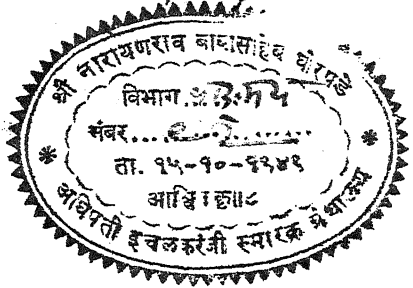 श्री नारायणराव बाबासाहेब घोरपडे
विभाग
नंबर
ता. १५-१०-१९४९
आश्वि
अधिपती इचलकरंजी स्मारक ग्रंथालय